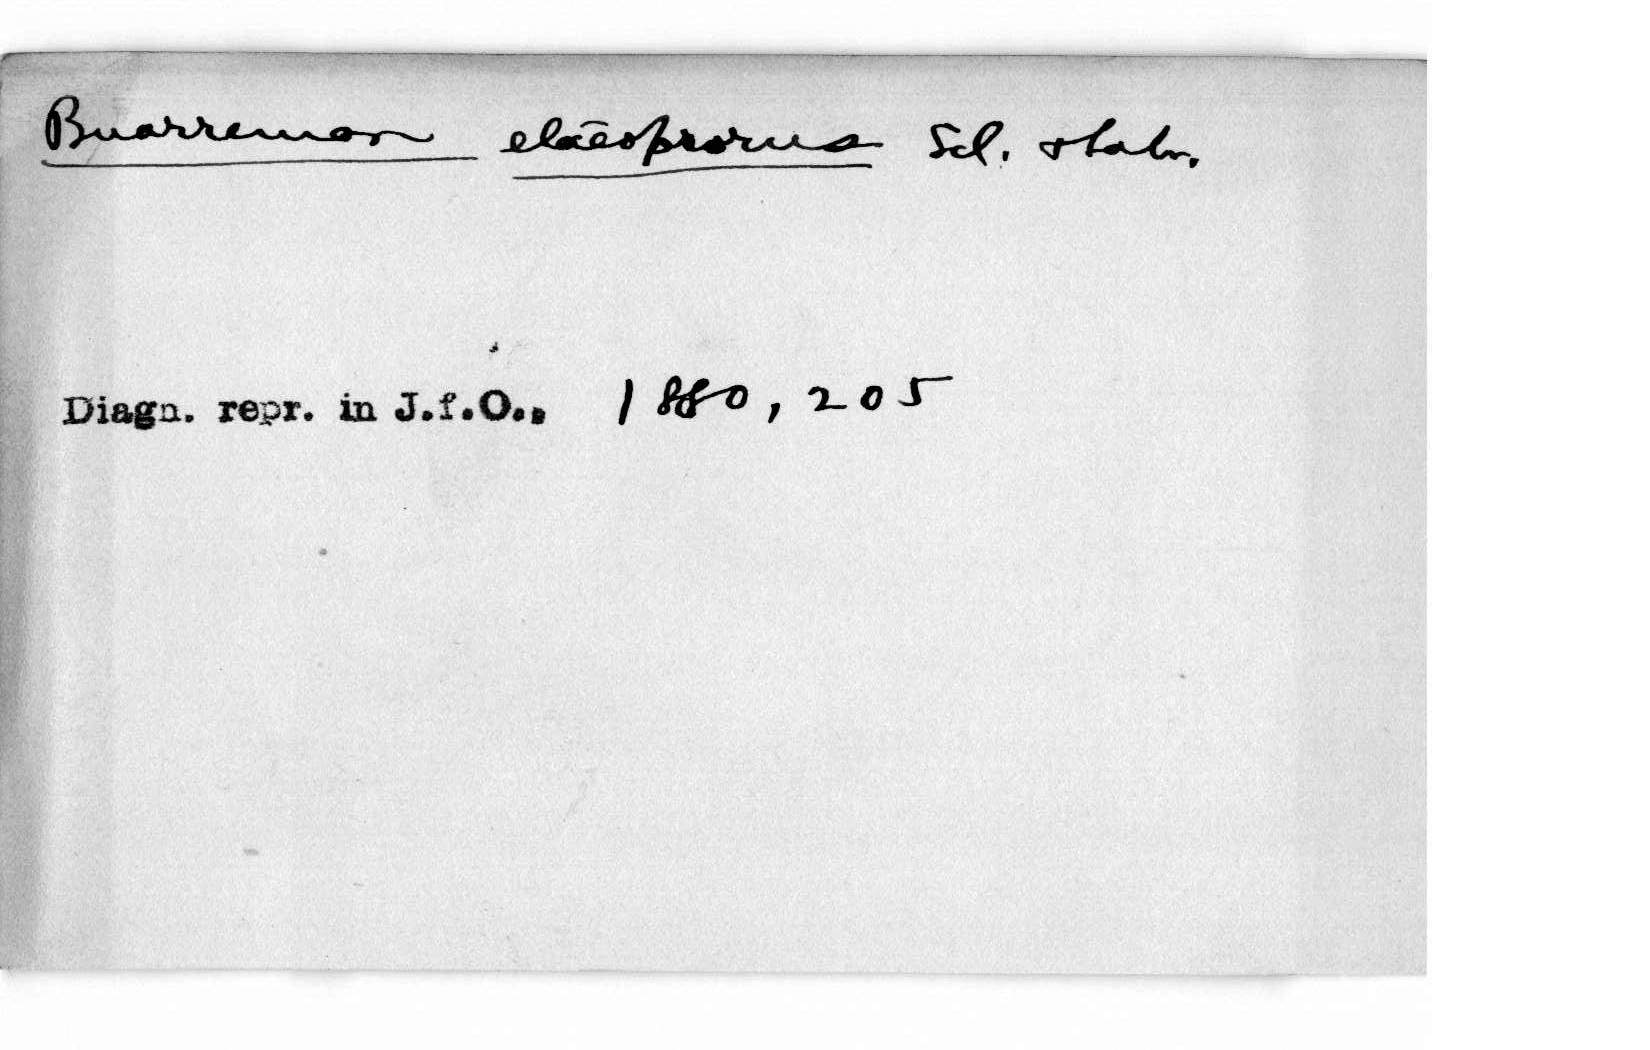 Buarremon elaeoprorus Scl. & Salv.
Diagn. repr. in J.f.O., 1880, 205